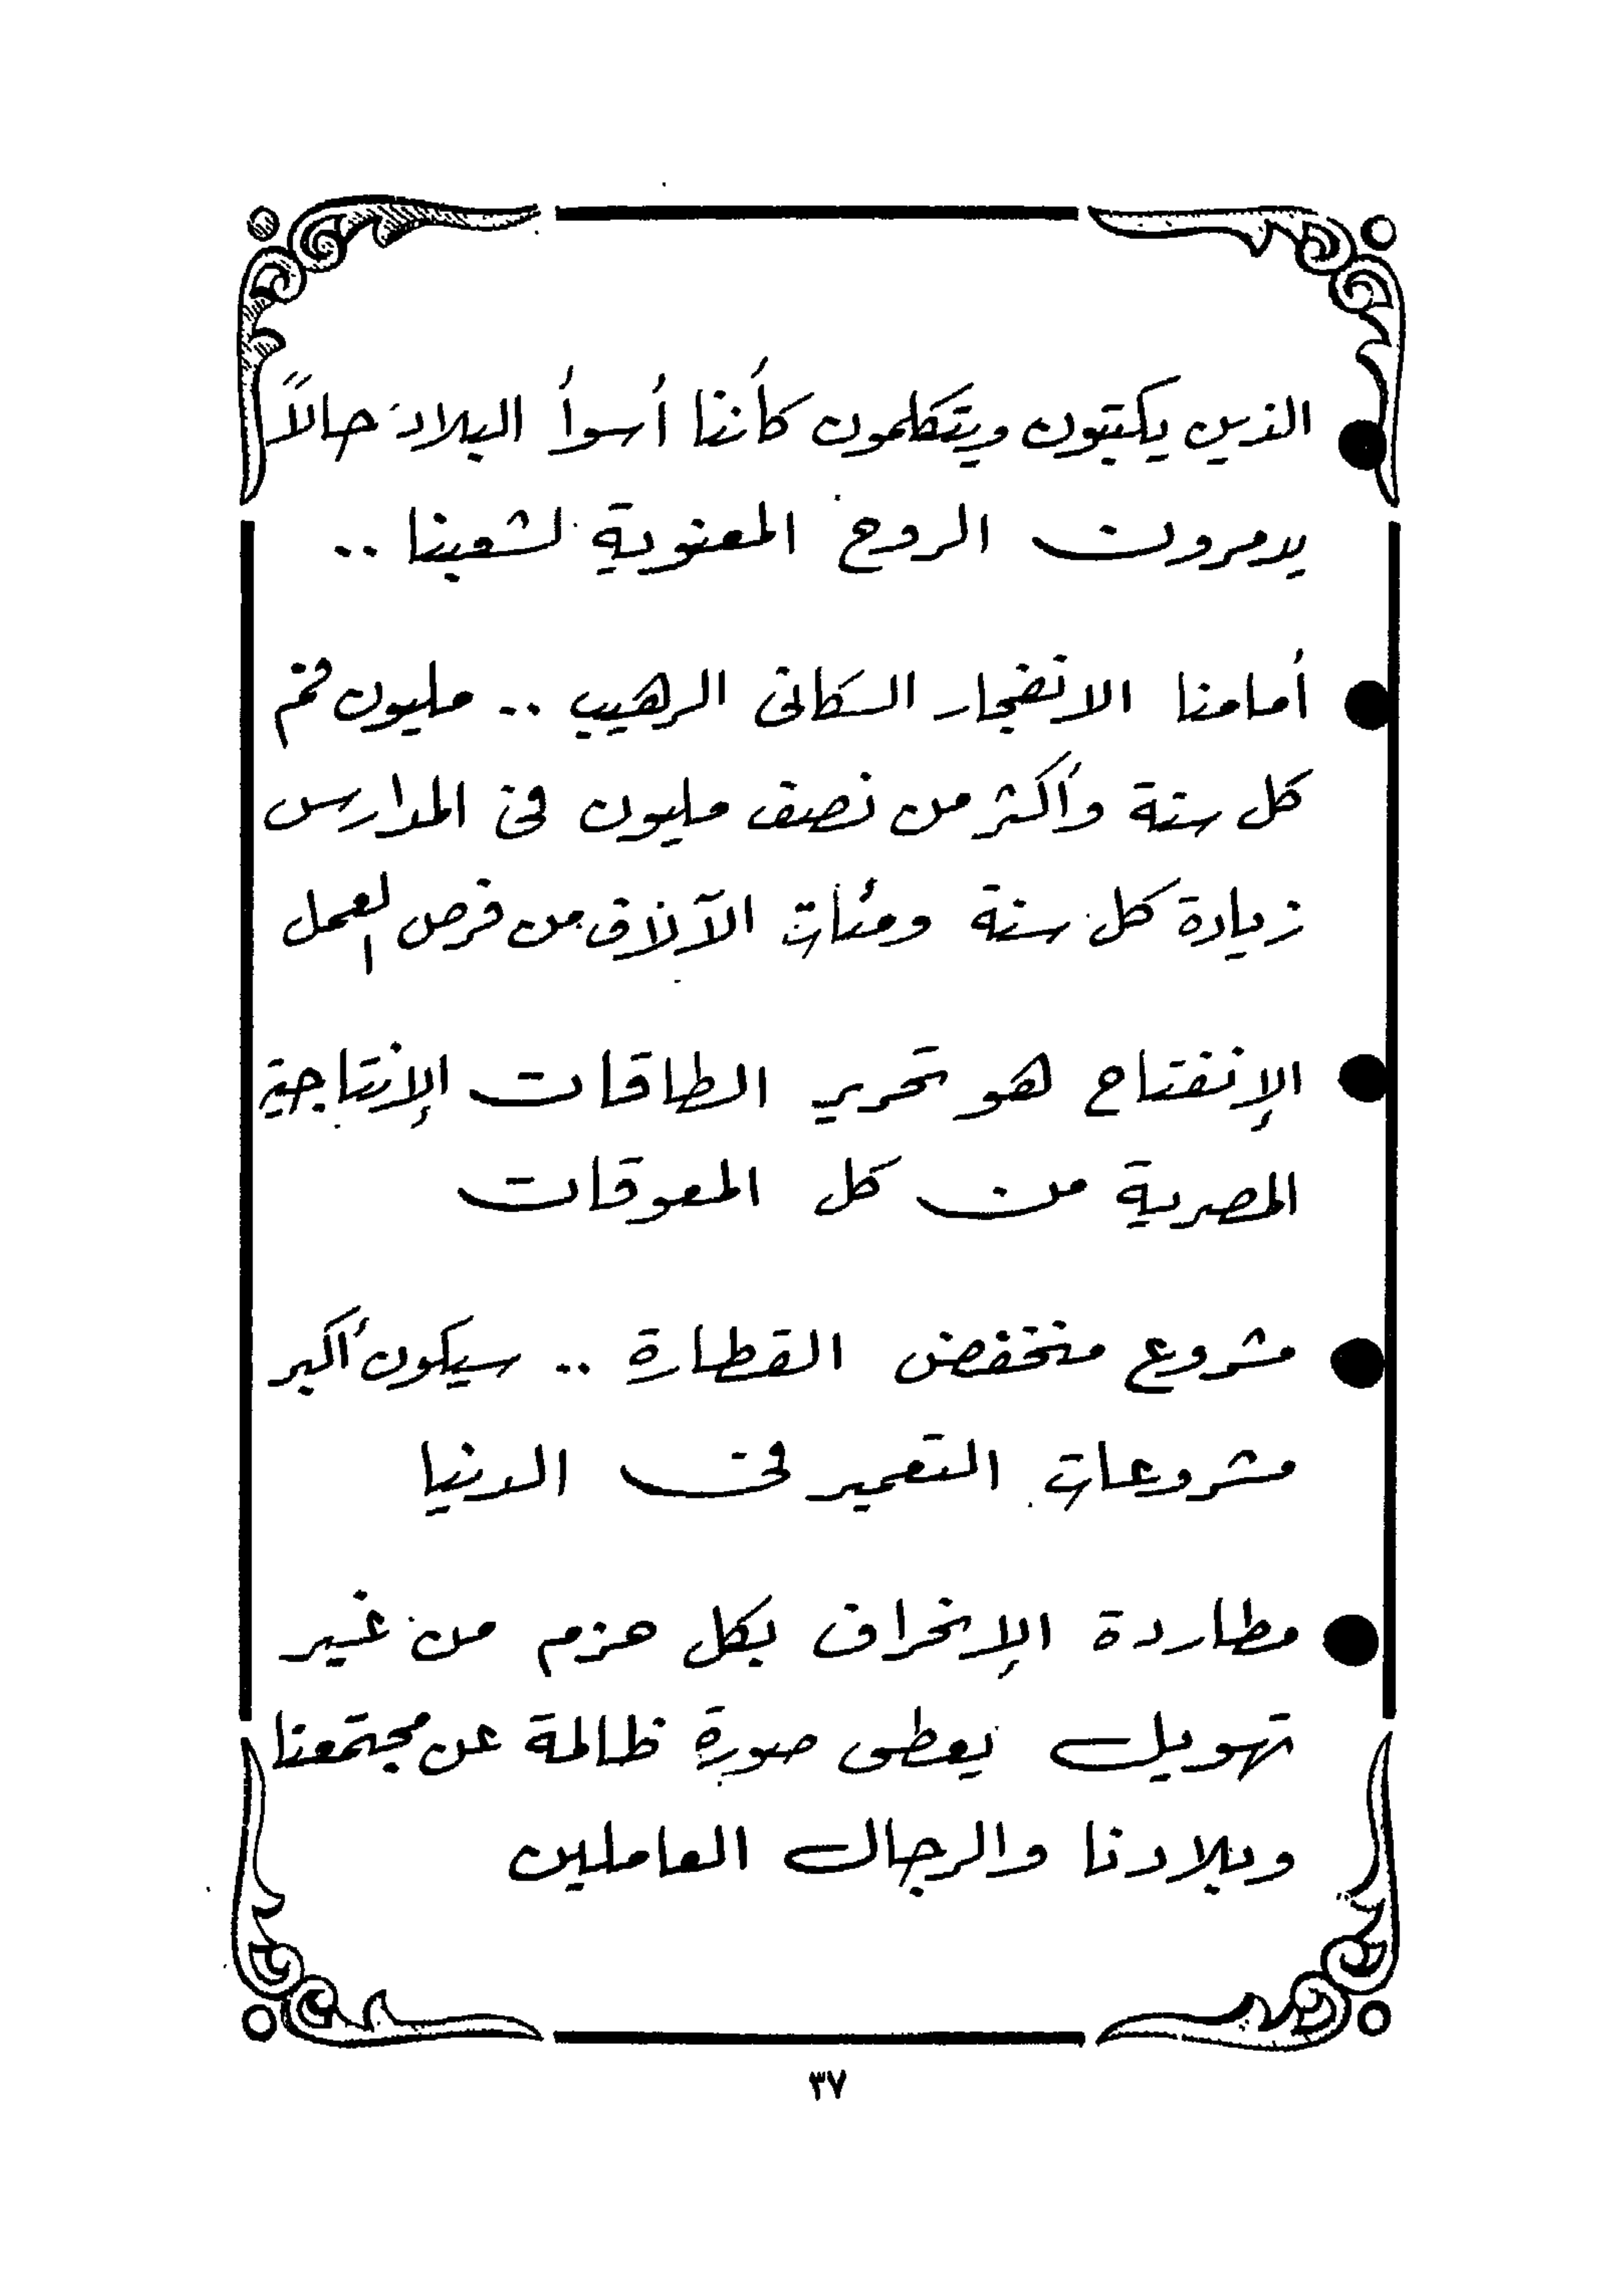 ● الذين يكتبون ويتكلمون كأننا أسوأ البلاد حالاً
يدمرون الروح المعنوية لشعبنا ..
● أمامنا الانفجار السكانى الرهيب .. مليون فم
كل سنة وأكثر من نصف مليون فى المدارس
زيادة كل سنة ومئات الآلاف من فرص العمل
● الإنفتاح هو تحرير الطاقات الإنتاجية
المصرية من كل المعوقات
● مشروع منخفض القطارة .. سيكون أكبر
مشروعات التعمير فى الدنيا
● مطاردة الإنحراف بكل حزم من غير
تهويل يعطى صورة ظالمة عن مجتمعنا
وبلادنا والرجال العاملين
٣٧